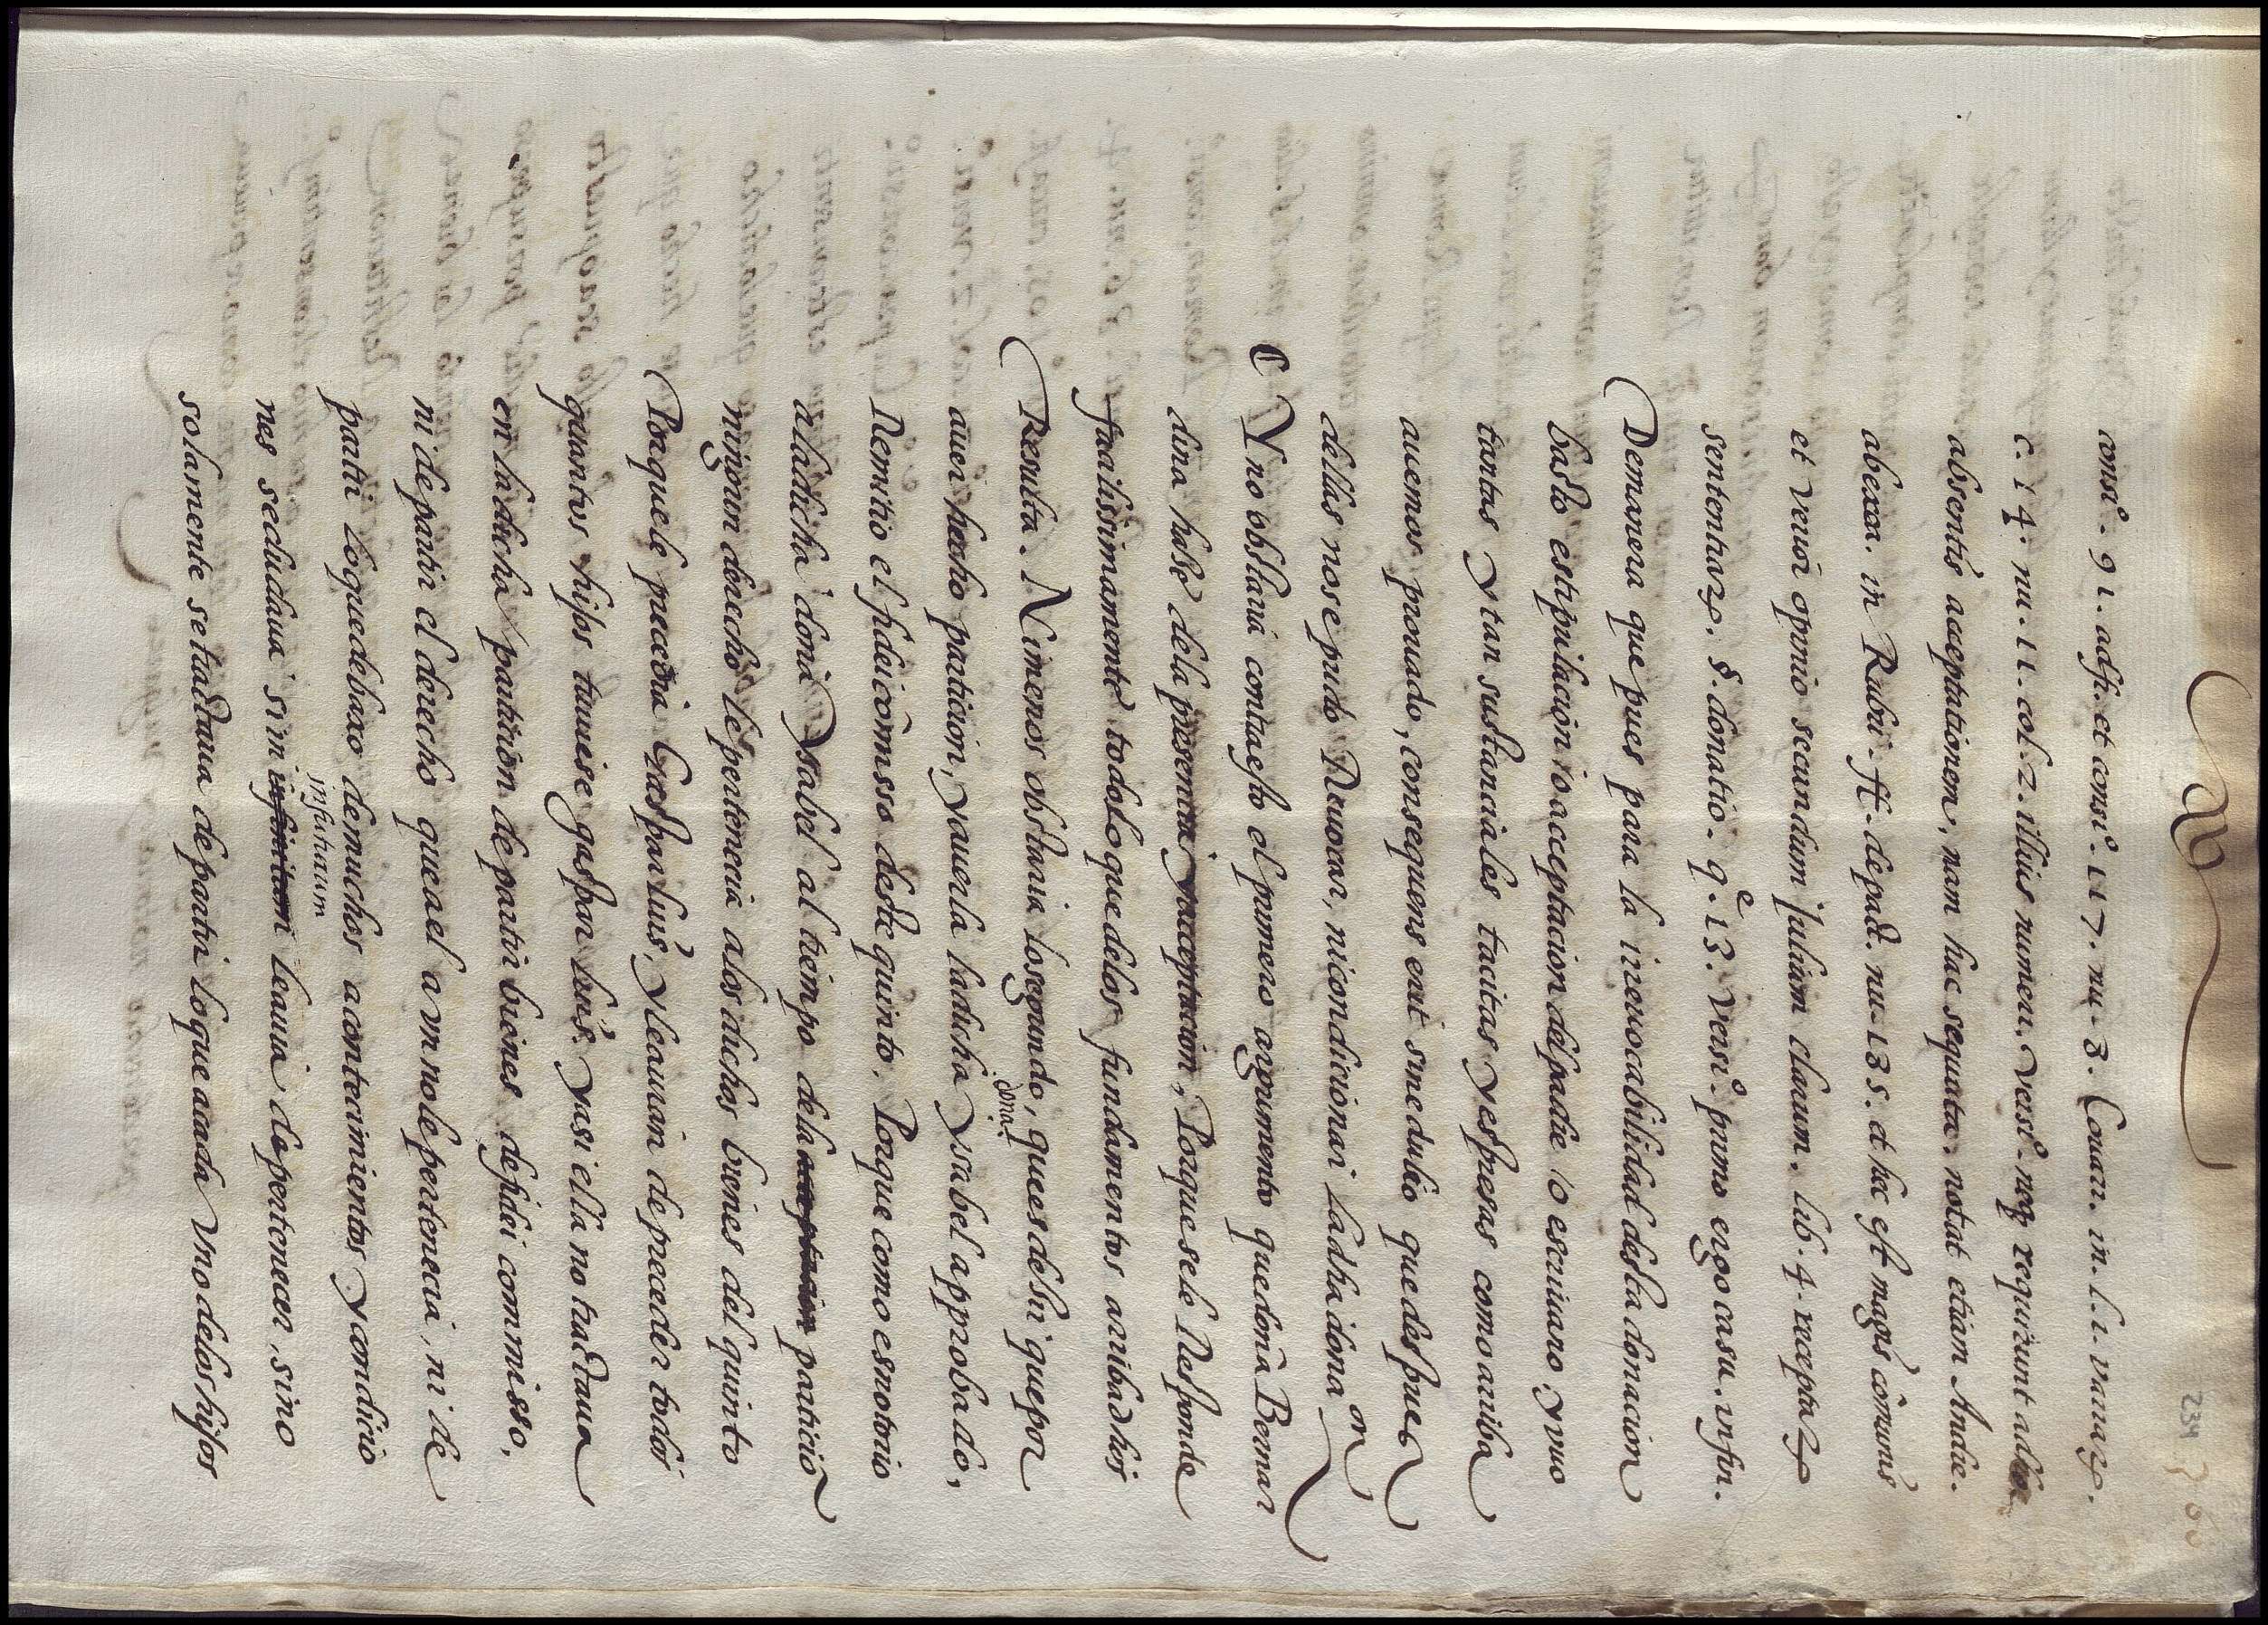 234
consi͞. 91. adfi. et consi͞. 117. nu. 3. Couarr. in. l. 1. variaꝝ.
c. 14. nu. 11. col. 2. illius numeri. versi͞. neq; requirunt
absentis acceptationem, nam hac sequuta. notat etiam Andre.
abexea. in Rubri. ff. de pact. nu. 135. et hec est magis cōmunis
et verior opinio secundum Julium clarum. lib. 4. receptaꝝ
sententiarꝝ. §. donatio. q. 13. versi͞. primo ergo casu. in fin.
Demanera que pues para la irreuocabilidad desta donacion
basto estipulacion / o acceptacion del padre / o escriuano, y vuo
tantas y tan sustanciales tacitas y espresas como arriba
auemos prouado, consequens erit sine dubio que despues
dellas no se pudo Reuocar, ni condicionar la dha dona on
Y no obstaria contra esto el primero argumento que doña Bernar
dina haze de la presencia y acceptacion, Porque se le Responde
facilissimamente todo lo que de los fundamentos arriba dhos
Resulta. Ni menos obstaria lo segundo, que es dezir que por
auer hecho particion, y auerla la dicha doña ysabel approbado,
Remitio el fideicōmisso deste quinto. Porque como es notorio
a la dicha doña ysabel al tiempo de la acceptacion particiō
ningun derecho le pertenecia a los dichos bienes del quinto
Porque le precedia Gaspar luis, y le auian de preceder todos
quantos hijos tuuiese gaspar luis. y asi ella no tractaua
en la dicha particion de partir bienes de fidei commisso,
ni de partir el derecho que a el aun no le pertenecia, ni de
partir lo que debaxo de muchos acontecimientos y condicio
nes se ciudaua si in infinitum in futurum le auia de pertenecer, sino
solamente se tractaua de partir lo que a cada vno de los hijos